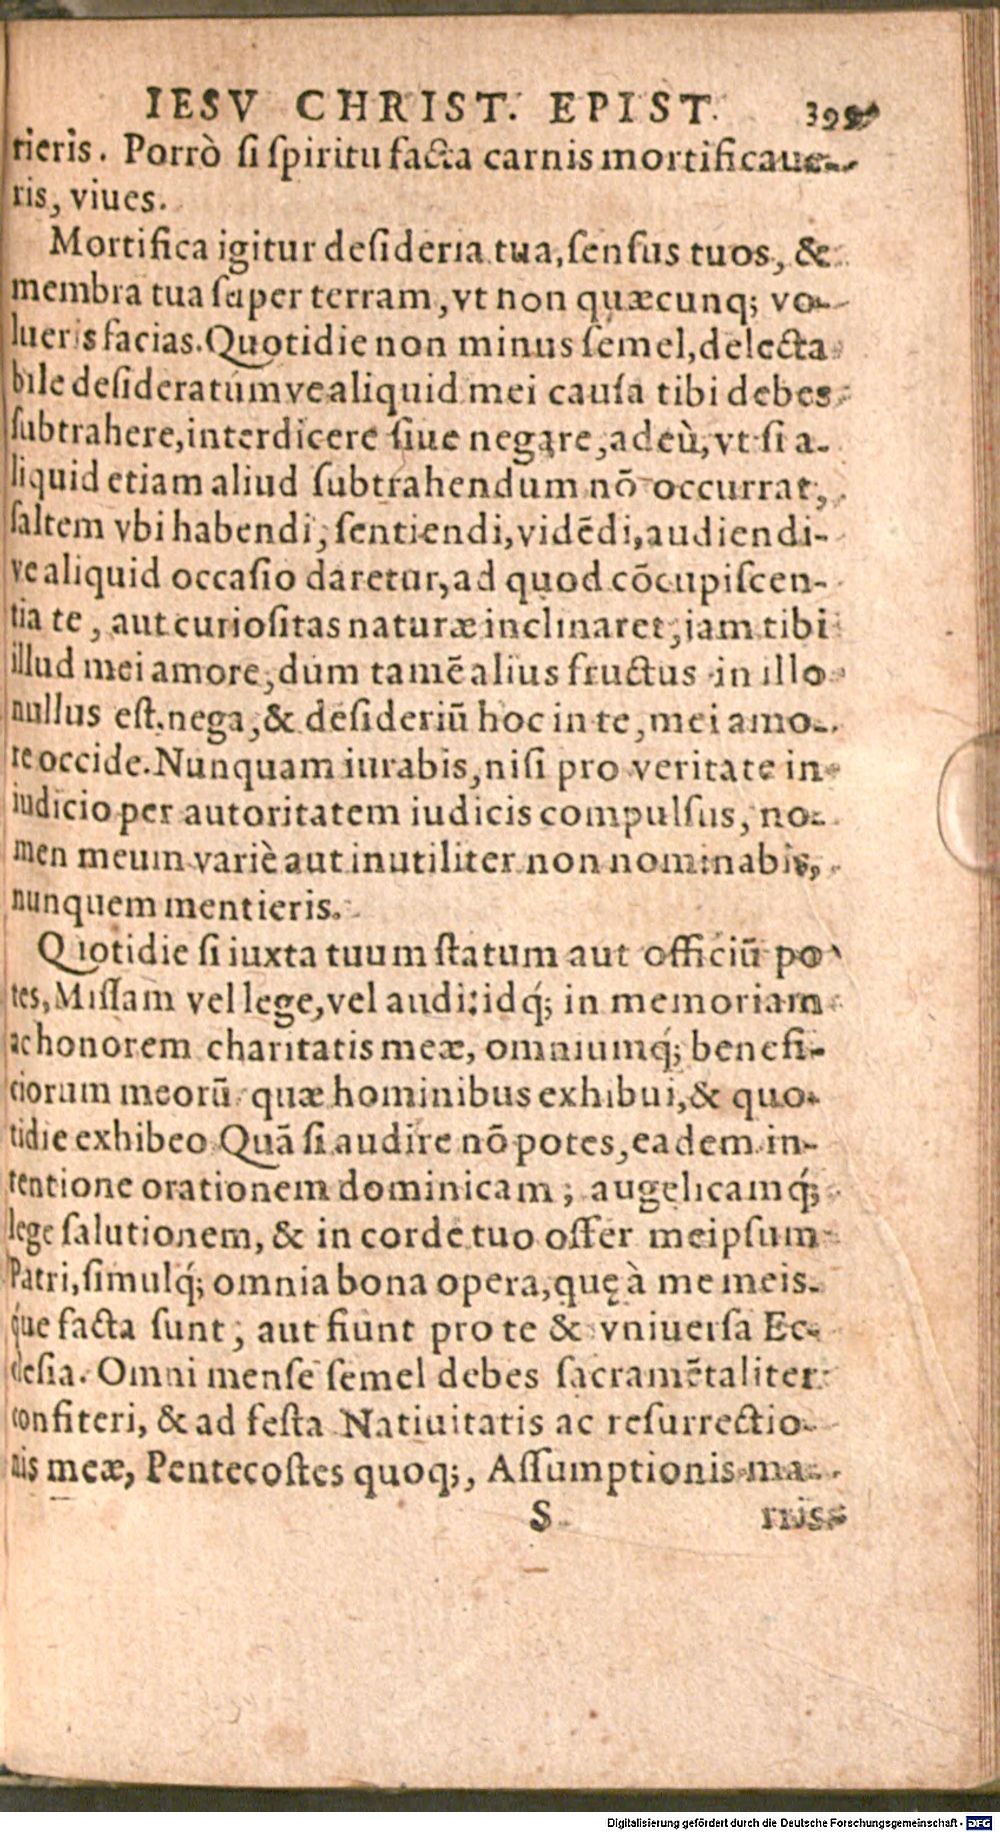 IESV CHRIST. EPIST.
rieris. Porrò si spiritu facta carnis mortificaue-
ris, viues.
Mortifica igitur desideria tua, sensus tuos, &
membra tua super terram, vt non quæcunq; vo-
lueris facias. Quotidie non minus semel, delecta
bile desideratumve aliquid mei causa tibi debes
subtrahere, interdicere siue negare, adeù, vt si a-
liquid etiam aliud subtrahendum nō occurrat,
saltem vbi habendi, sentiendi, vidēdi, audiendi-
ve aliquid occasio daretur, ad quod cōcupiscen-
tia te, aut curiositas naturæ inclinaret, iam tibi
illud mei amore, dum tamē alius fructus in illo
nullus est. nega, & desideriū hoc in te, mei amo-
re occide. Nunquam iurabis, nisi pro veritate in
iudicio per autoritatem iudicis compulsus, no-
men meum variè aut inutiliter non nominabis,
nunquem mentieris.
Quotidie si iuxta tuum statum aut officiū po
tes, Missam vel lege, vel audi: idq́; in memoriam
ac honorem charitatis meæ, omniumq́; benefi-
ciorum meorū quæ hominibus exhibui, & quo-
tidie exhibeo Quā si audire nō potes, eadem in-
tentione orationem dominicam, augelicamq́;
lege salutionem, & in corde tuo offer meipsum
Patri, simulq́; omnia bona opera, quę à me meis-
q́ue facta sunt, aut fiunt pro te & vniuersa Ec-
clesia. Omni mense semel debes sacramētaliter
confiteri, & ad festa Natiuitatis ac resurrectio-
nis meæ, Pentecostes quoq;, Assumptionis ma-
S
Digitalisierung gefördert durch die Deutsche Forschungsgemeinschaft - DFG